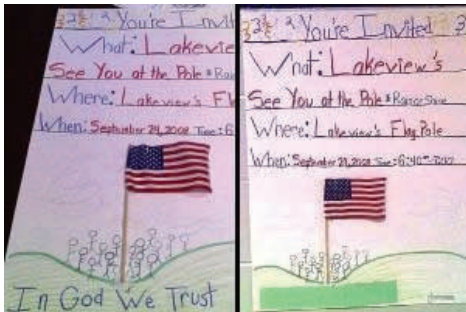 You're Invited
What: Lakevie
See You at the Pole
Where: Lakeview's Fl
When: September 24, 2008 Time: 6
In God We Trust
You're Invited
What: Lakeview's
See You at the Pole * Rain or Shine
Where: Lakeview's Flag Pole
When: September 24, 2008 Time: 6:40